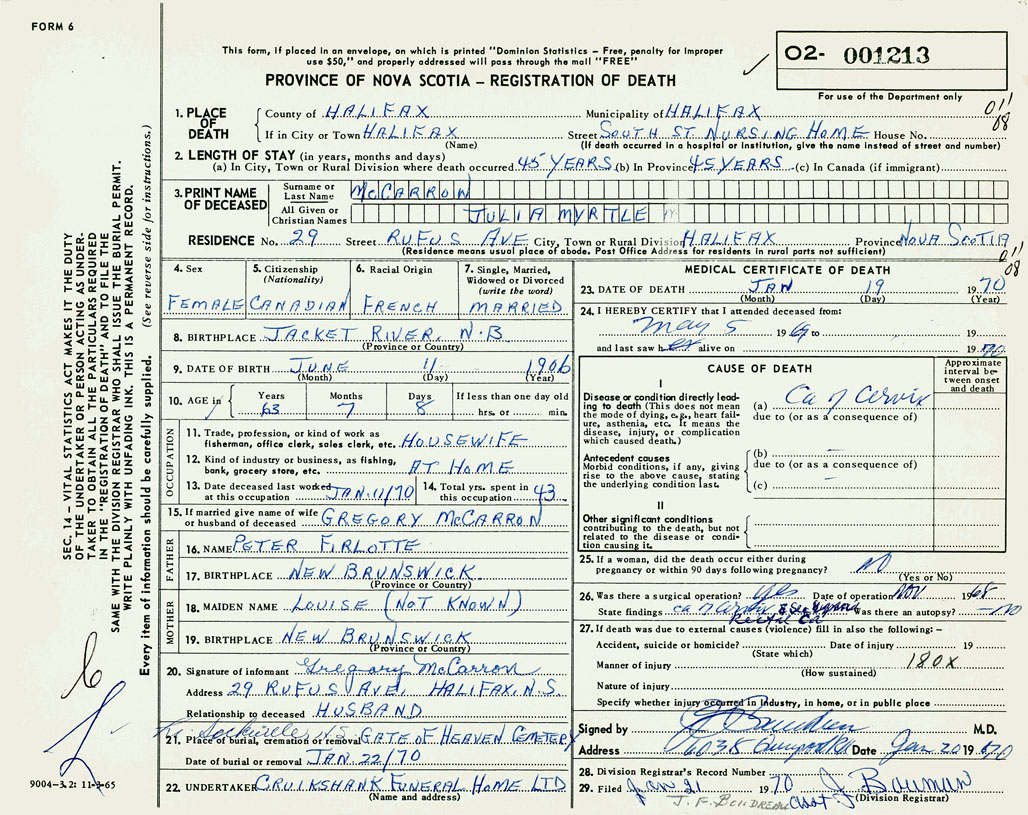 FORM 6
This form, if placed in an envelope, on which is printed "Dominion Statistics – Free, penalty for improper
use $50," and properly addressed will pass through the mail "FREE"
PROVINCE OF NOVA SCOTIA – REGISTRATION OF DEATH
O2- 001213
For use of the Department only
011
08
SEC. 14 – VITAL STATISTICS ACT MAKES IT THE DUTY
OF THE UNDERTAKER OR PERSON ACTING AS UNDER-
TAKER TO OBTAIN ALL THE PARTICULARS REQUIRED
IN THE "REGISTRATION OF DEATH" AND TO FILE THE
SAME WITH THE DIVISION REGISTRAR WHO SHALL ISSUE THE BURIAL PERMIT.
WRITE PLAINLY WITH UNFADING INK. THIS IS A PERMANENT RECORD.
Every item of information should be carefully supplied. (See reverse side for instructions.)
1. PLACE OF DEATH County of HALIFAX Municipality of HALIFAX
If in City or Town HALIFAX Street SOUTH ST NURSING HOME House No.
(Name) (If death occurred in a hospital or institution, give the name instead of street and number)
2. LENGTH OF STAY (in years, months and days)
(a) In City, Town or Rural Division where death occurred 45 YEARS (b) In Province 45 YEARS (c) In Canada (if immigrant)
3. PRINT NAME OF DECEASED Surname or Last Name McCARRON
All Given or Christian Names JULIA MYRTLE
RESIDENCE No. 29 Street RUFUS AVE City, Town or Rural Division HALIFAX Province NOVA SCOTIA
(Residence means usual place of abode. Post Office Address for residents in rural parts not sufficient)
011
08
4. Sex 5. Citizenship (Nationality) 6. Racial Origin 7. Single, Married, Widowed or Divorced (write the word)
FEMALE CANADIAN FRENCH MARRIED
8. BIRTHPLACE JACKET RIVER, N.B
(Province or Country)
9. DATE OF BIRTH JUNE 11 1906
(Month) (Day) (Year)
10. AGE in Years Months Days If less than one day old
63 7 8 hrs. or min.
OCCUPATION
11. Trade, profession, or kind of work as
fisherman, office clerk, sales clerk, etc. HOUSEWIFE
12. Kind of industry or business, as fishing,
bank, grocery store, etc. AT HOME
13. Date deceased last worked at this occupation JAN. 11/70 14. Total yrs. spent in this occupation 43
15. If married give name of wife
or husband of deceased GREGORY McCARRON
FATHER
16. NAME PETER FIRLOTTE
17. BIRTHPLACE NEW BRUNSWICK
(Province or Country)
MOTHER
18. MAIDEN NAME LOUISE (NOT KNOWN)
19. BIRTHPLACE NEW BRUNSWICK
(Province or Country)
20. Signature of informant Gregory McCarron
Address 29 RUFUS AVE, HALIFAX, N.S.
Relationship to deceased HUSBAND
Sackville N.S.
21. Place of burial, cremation or removal GATE OF HEAVEN CEMETERY
Date of burial or removal JAN. 22/70
22. UNDERTAKER CRUIKSHANK FUNERAL HOME LTD
(Name and address)
9004-3.2: 11-3-65
MEDICAL CERTIFICATE OF DEATH
23. DATE OF DEATH JAN 19 1970
(Month) (Day) (Year)
24. I HEREBY CERTIFY that I attended deceased from:
May 5 1969 to 19
and last saw her alive on 1970
CAUSE OF DEATH
Approximate interval be-tween onset and death
I
Disease or condition directly lead-
ing to death (This does not mean
the mode of dying, e.g., heart fail-
ure, asthenia, etc. It means the
disease, injury, or complication
which caused death.)
(a) Ca of Cervix
due to (or as a consequence of)
Antecedent causes
Morbid conditions, if any, giving
rise to the above cause, stating
the underlying condition last.
(b) –
due to (or as a consequence of)
(c) –
II
Other significant conditions
contributing to the death, but not
related to the disease or condi-
tion causing it.
25. If a woman, did the death occur either during
pregnancy or within 90 days following pregnancy? NO
(Yes or No)
26. Was there a surgical operation? yes Date of operation NOV 1968
State findings ca of cervix Rectal Ca Was there an autopsy? – NO
27. If death was due to external causes (violence) fill in also the following: –
Accident, suicide or homicide? Date of injury 19
(State which)
Manner of injury 180X
(How sustained)
Nature of injury
Specify whether injury occurred in industry, in home, or in public place
Signed by M.D.
Address 6035 Date Jan 20 1970
28. Division Registrar's Record Number
29. Filed Jan 21 1970 J. Bauman
J. F. BOUDREAU asst. (Division Registrar)